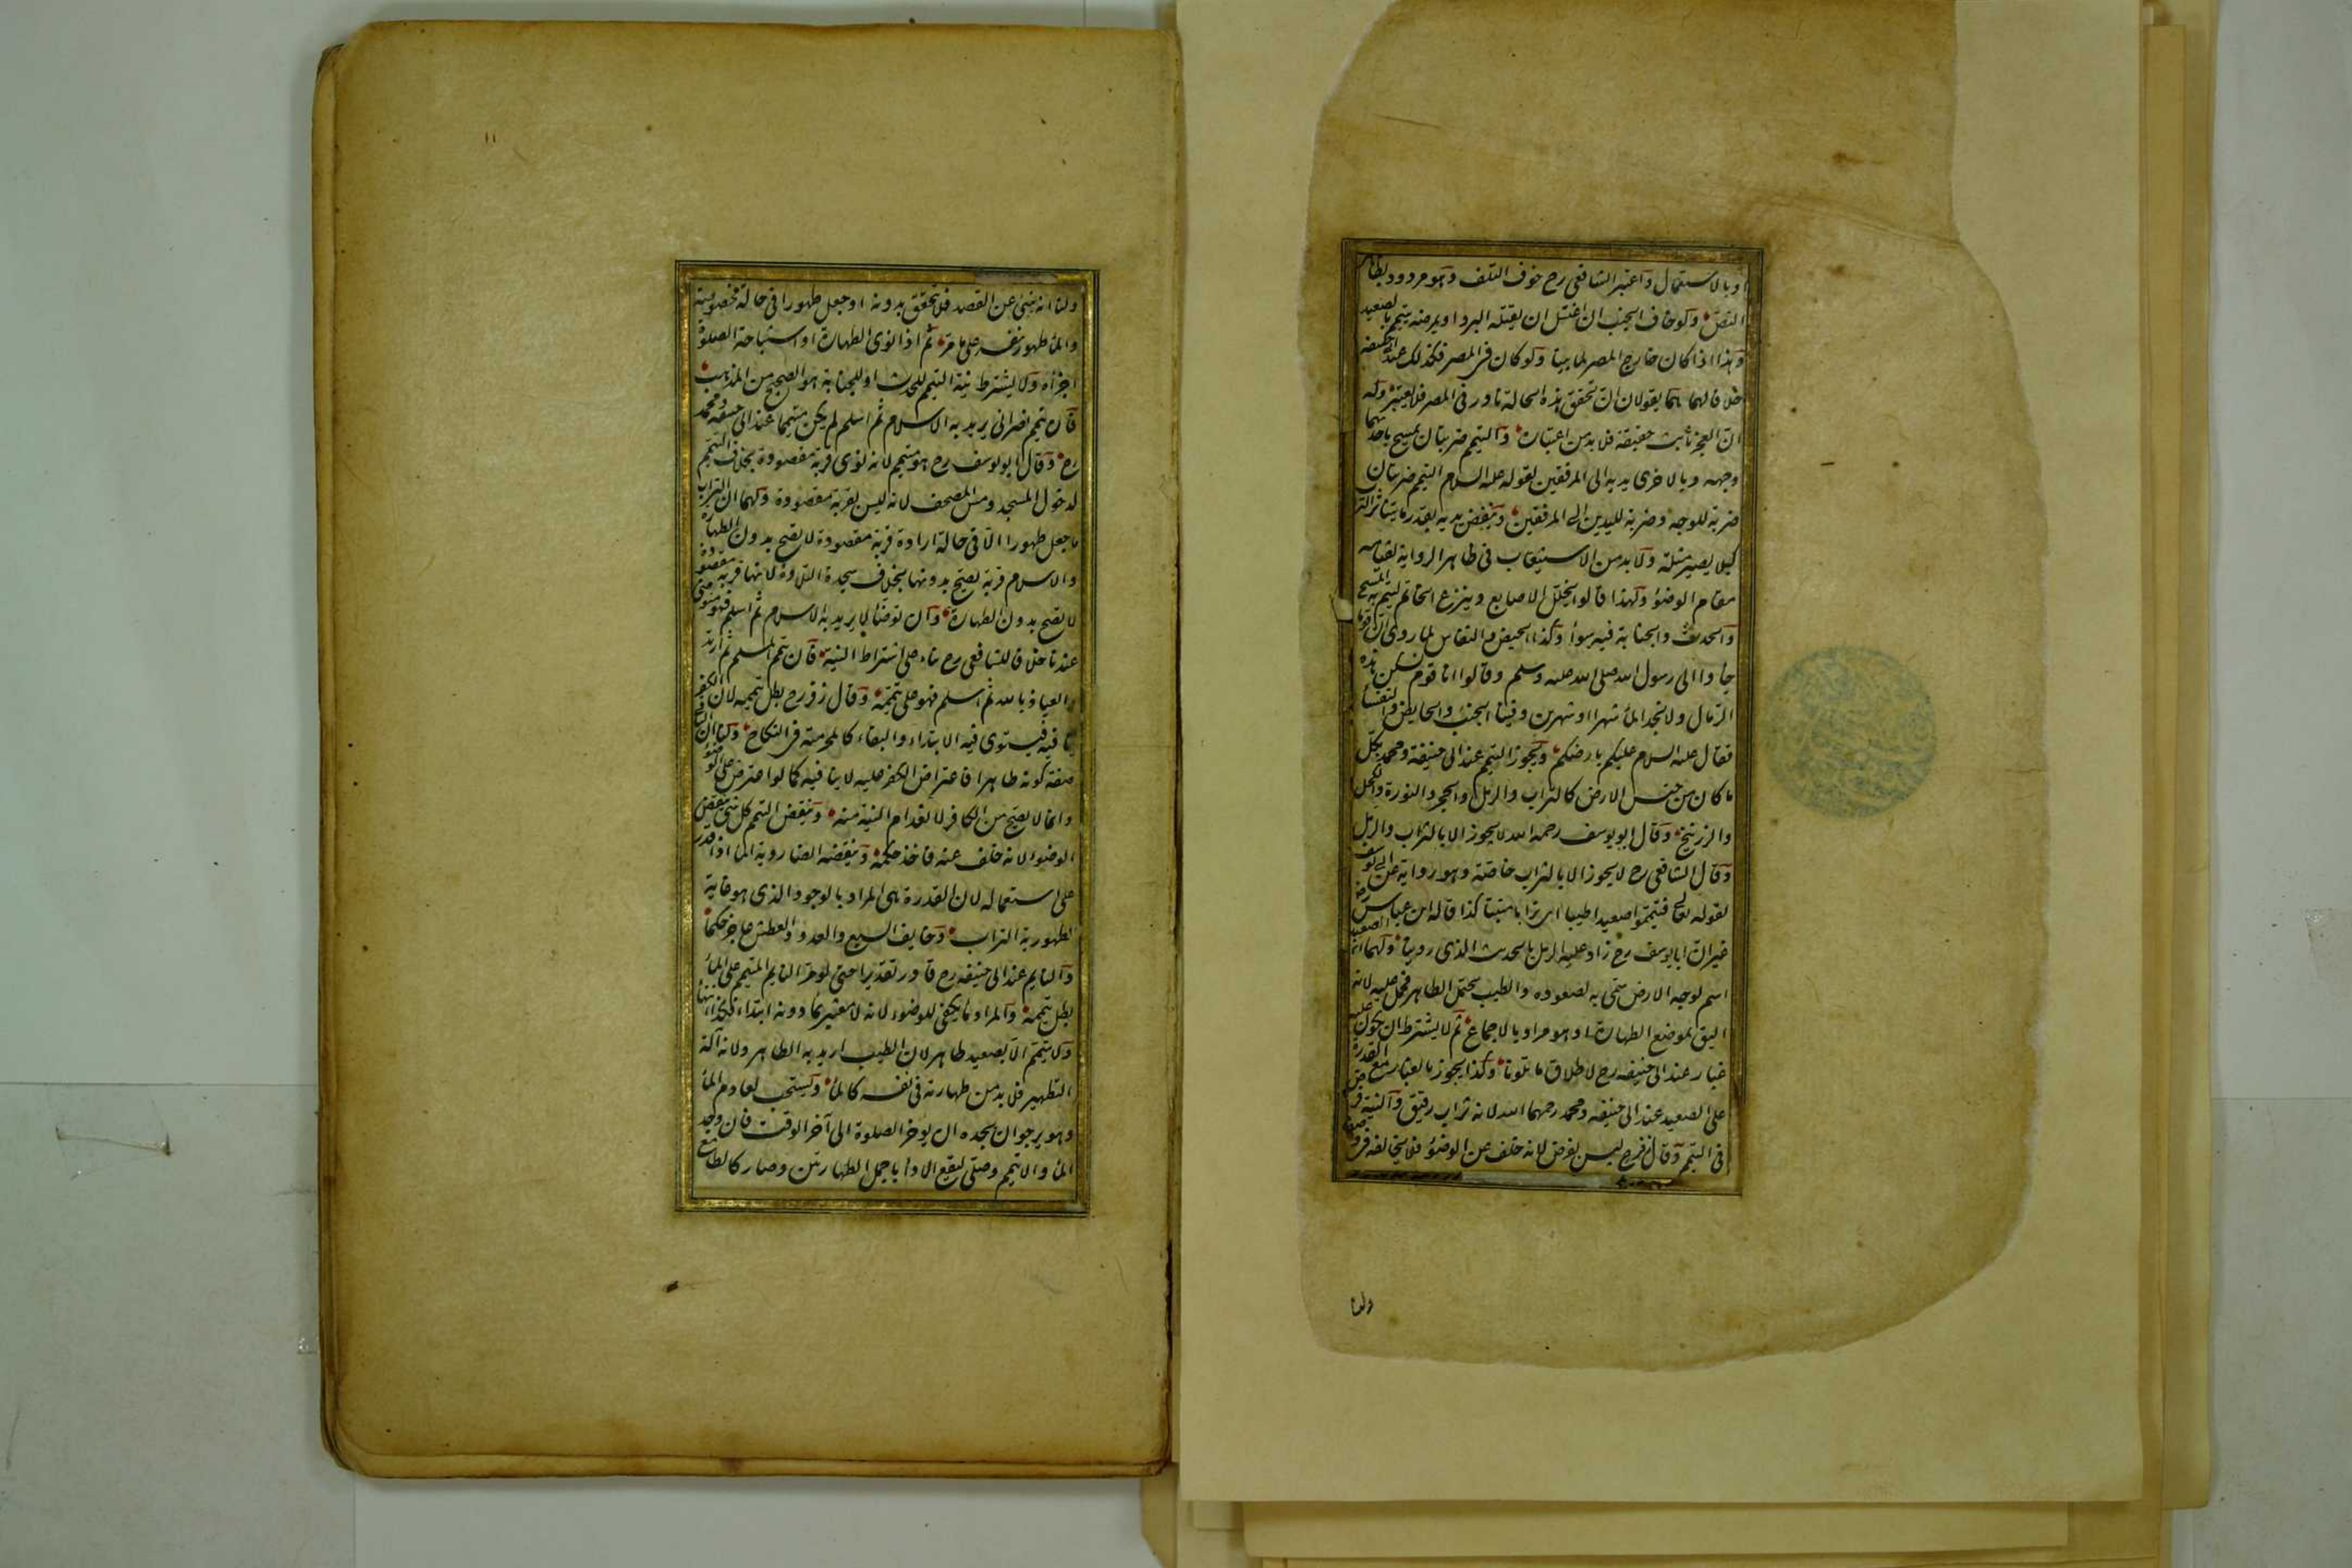 او بالاستعمال واعتبر الشافعى رح خوف التلف وهو مردود بظاهر
النص ولو خاف الجنب ان اغتسل ان يقتله البرد او يمرضه يتيمم بالصعيد
وهذا اذا كان خارج المصر لما بينا ولو كان فى المصر فكذلك عند ابى حنيفة
خلافا لهما هما يقولان ان تحقق هذه الحالة نادر فى المصر فلا يعتبر وله
ان العجز ثابت حقيقة فلا بد من اعتباره والتيمم ضربتان يمسح باحديهما
وجهه وبالاخرى يديه الى المرفقين لقوله عليه السلام التيمم ضربتان
ضربة للوجه وضربة لليدين الى المرفقين وينفض يديه بقدر ما يتناثر التراب
كيلا يصير مثلة ولا بد من الاستيعاب فى ظاهر الرواية لقيامه
مقام الوضوء ولهذا قالوا يخلل الاصابع وينزع الخاتم ليتم به المسح
والحدث والجنابة فيه سواء وكذا الحيض والنفاس لما روى ان قوما
جاءوا الى رسول الله صلى الله عليه وسلم وقالوا انا قوم نسكن هذه
الرمال ولا نجد الماء شهرا او شهرين وفينا الجنب والحايض والنفساء
فقال عليه السلام عليكم بارضكم ويجوز التيمم عند ابى حنيفة ومحمد بكل
ما كان من جنس الارض كالتراب والرمل والحجر والنورة والكحل
والزرنيخ وقال ابو يوسف رحمه الله لا يجوز الا بالتراب والرمل
وقال الشافعى رح لا يجوز الا بالتراب خاصة وهو رواية عن ابى يوسف
لقوله تعالى فتيمموا صعيدا طيبا اى ترابا منبتا كذا قاله ابن عباس رض
غير ان ابا يوسف رح زاد عليه الرمل بالحديث الذى روينا ولهما ان الصعيد
اسم لوجه الارض سمى به لصعوده والطيب يحتمل الطاهر فحمل عليه لانه
اليق بموضع الطهارة او هو مراد بالاجماع ثم لا يشترط ان يكون عليه
غبار عند ابى حنيفه رح لاطلاق ما تلونا وكذا يجوز بالغبار مع القدرة
على الصعيد عند ابى حنيفه ومحمد رحمهما الله لانه تراب رقيق والنية فرض
فى التيمم وقال زفر رح ليس بفرض لانه خلف عن الوضوء فلا يخالفه فى وصفه
ولنا
١١
ولنا انه ينبئ عن القصد فلا يتحقق بدونه او جعل طهورا فى حالة مخصوصة
والماء طهور بنفسه على ما مر ثم اذا نوى الطهارة او استباحة الصلوة
اجزأه ولا يشترط نية التيمم للحدث او للجنابة هو الصحيح من المذهب
فان تيمم نصرانى يريد به الاسلام ثم اسلم لم يكن متيمما عند ابى حنيفة ومحمد
رح وقال ابو يوسف رح هو متيمم لانه نوى قربة مقصودة بخلاف التيمم
لدخول المسجد ومس المصحف لانه ليس بقربة مقصودة ولهما ان التراب
ما جعل طهورا الا فى حالة ارادة قربة مقصودة لا تصح بدون الطهارة
والاسلام قربة تصح بدونها بخلاف سجدة التلاوة لانها قربة مقصودة
لا تصح بدون الطهارة وان توضأ لا يريد به الاسلام ثم اسلم فهو متوضئ
عندنا خلافا للشافعى رح بناء على اشتراط النية فان تيمم المسلم ثم ارتد
والعياذ بالله ثم اسلم فهو على تيممه وقال زفر رح بطل تيممه لان الكفر
ينافيه فيستوى فيه الابتداء والبقاء كالمحرمية فى النكاح ولنا ان الباقى
صفة كونه طاهرا فاعتراض الكفر عليه لا ينافيه كما لو اعترض على الوضوء
وانما لا يصح من الكافر لانعدام النية منه وينقض التيمم كل شئ ينقض
الوضوء لانه خلف عنه فاخذ حكمه وينقضه ايضا رؤية الماء اذا قدر
على استعماله لان القدرة هى المراد بالوجود الذى هو غاية
لطهورية التراب وخايف السبع والعدو والعطش عاجز حكما
والنايم عند ابى حنيفه رح قادر تقديرا حتى لو مر النايم المتيمم على الماء
بطل تيممه والمراد ما يكفى للوضوء لانه لا معتبر بما دونه ابتداء فكذا انتهاء
ولا يتيمم الا بصعيد طاهر لان الطيب اريد به الطاهر ولانه آلة
التطهير فلا بد من طهارته فى نفسه كالماء ويستحب لعادم الماء
وهو يرجو ان يجده ان يوخر الصلوة الى آخر الوقت فان وجد
الماء والا تيمم وصلى ليقع الاداء باكمل الطهارتين وصار كالطامع